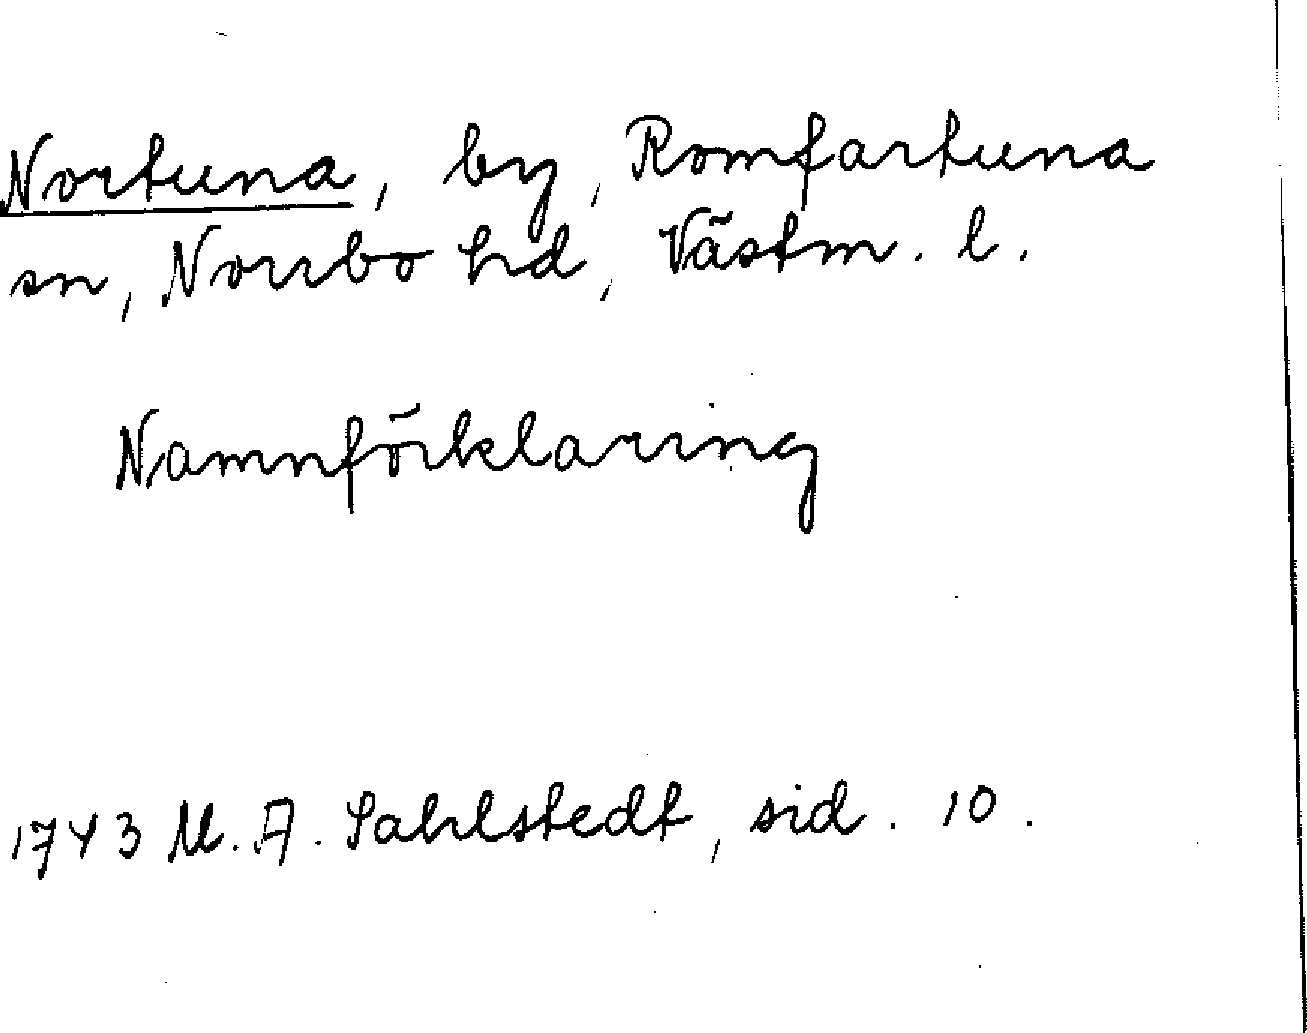 Nortuna, by, Romfartuna
sn, Norrbo hd, Västm. l.
Namnförklaring
1743 M. A. Sahlstedt, sid. 10.